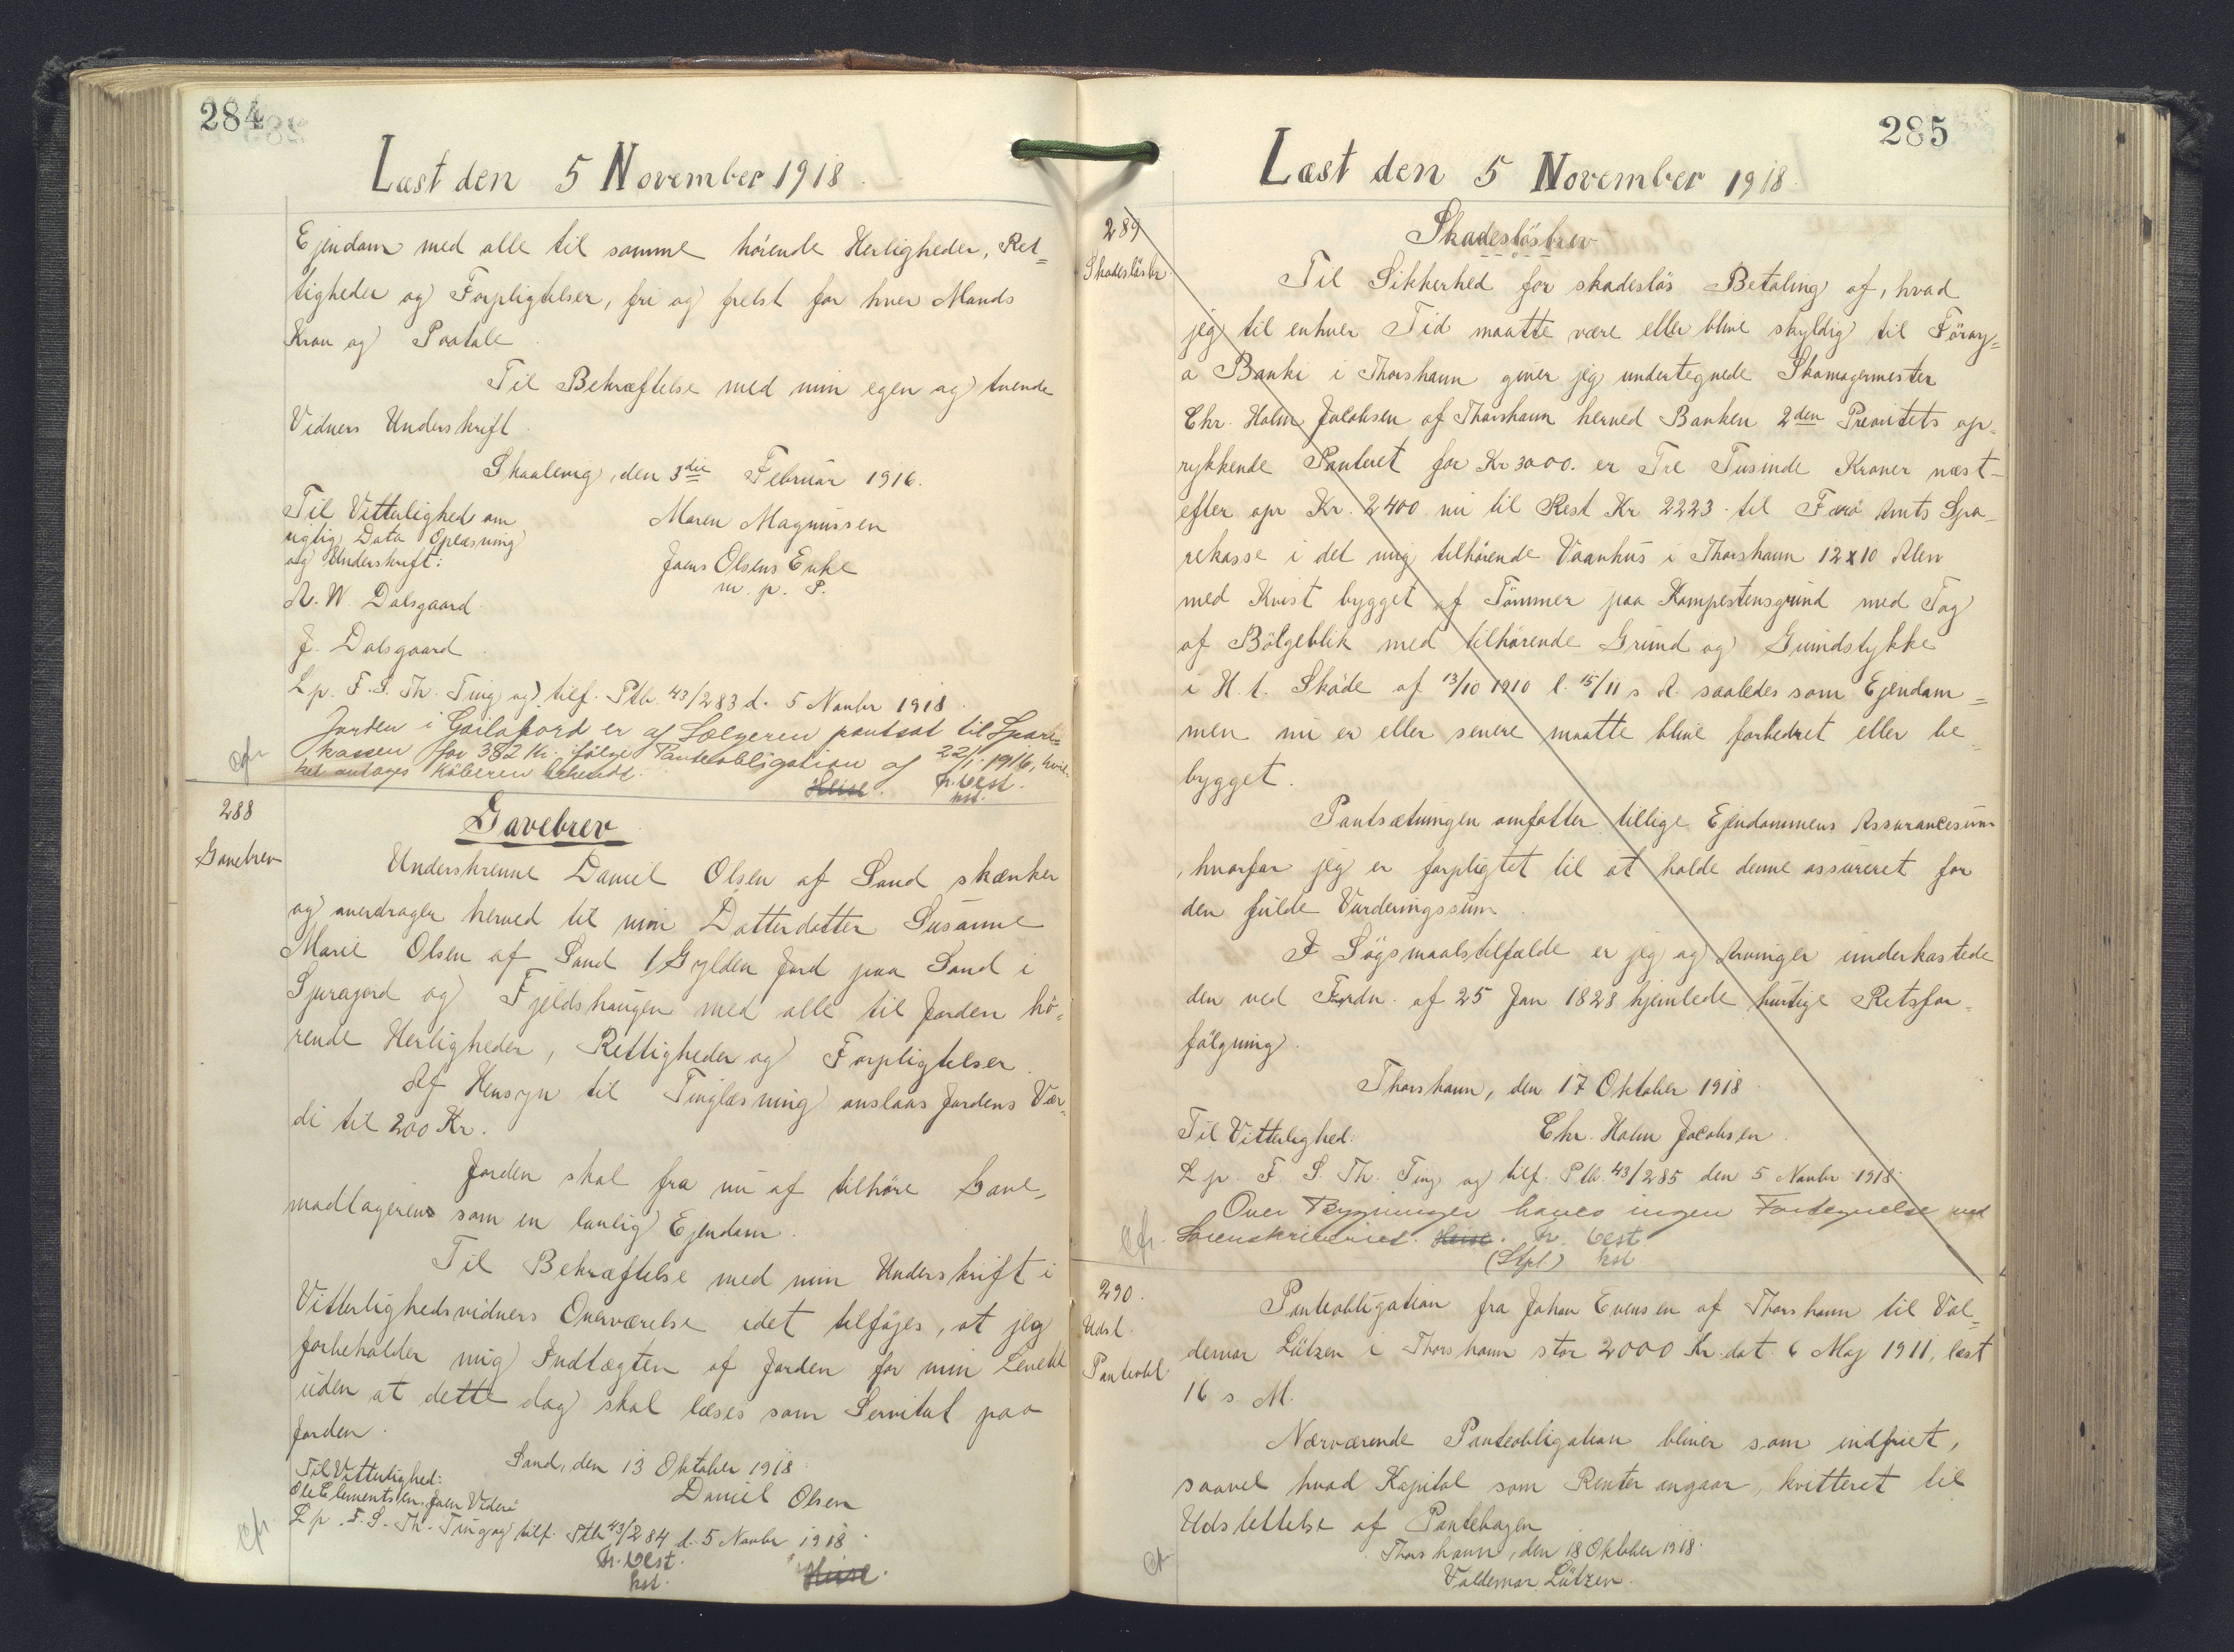 284
Læst den 5 November 1918.
Ejendom med alle til samme hörende Herligheder, Ret=
tigheder og Forpligtelser, fri og frelst for hver Mands
Krav og Paatale.
Til Bekræftelse med min egen og tvende
Vidners Underskrift.
Skaalevig, den 3die Februar 1916.
Til Vitterlighed om
rigtig Dato Oplæsning
og Underskrift:
Maren Magnussen
Joens Olsens Enke
m. p. P.
N. W. Dalsgaard.
J. Dalsgaard
L p. F. S. Th. Ting og tilf. Ptb. 43/283 d. 5 Novbr 1918.
Jorden i er af Sælgeren pantsat til Spare=
kassen for 382 Kr. ifölge Panteobligation af 22/1 1916, hvil-
ket antages Köberen bekendt. Heise. fr. Vest.
kst.
cfr
288
Gavebrev
Gavebrev
Underskrevne Daniel Olsen af Sand skænker
og overdrager herved til min Datterdatter Susanne
Marie Olsen af Sand 1 Gylden Jord paa Sand i
Sjuragerd og Fjeldshaugen med alle til Jorden hö=
rende Herligheder, Rettigheder og Forpligtelser.
Af Hensyn til Tinglæsning anslaas Jordens Vær=
di til 200 Kr.
Jorden skal fra nu af tilhöre Gave-
modtageren som en lovlig Ejendom.
Til Bekræftelse med min Underskrift i
Vitterlighedsvidners Overværelse idet tilföjes, at jeg
forbeholder mig Indtægten af Jorden for min Levetid
uden at dette dog skal læses som Servitut paa
Jorden.
Sand, den 13 Oktober 1918.
Til Vitterlighed:
Ole Clementsen, Joen Viderö
Daniel Olsen
L p. F. S. Th. Ting og tilf. Ptb 43/284 d. 5 Novbr 1918.
fr. Vest.
kst.
Heise.
cfr.
285
Læst den 5 November 1918.
289
Skadeslösbr.
Skadeslösbrev
Til Sikkerhed for skadeslös Betaling af, hvad
jeg til enhver Tid maatte være eller blive skyldig til Föroy=
a Banki i Thorshavn giver jeg undertegnede Skomagermester
Chr. Holm Jacobsen af Thorshavn herved Banken 2den Prioritets op-
rykkende Panteret for Kr 3000. er Tre Tusinde Kroner næst-
efter opr Kr. 2400 nu til Rest Kr 2223. til Færö Amts Spa-
rekasse i det mig tilhörende Vaanhus i Thorshavn 12x10 Alen
med Kvist bygget af Tömmer paa Kampestensgrund med Tag
af Bölgeblik med tilhörende Grund og Grundstykke
i H. t. Sköde af 13/10 1910 l. 15/11 s A. saaledes som Ejendom=
men nu er eller senere maatte blive forbedret eller be=
bygget.
Pantsætningen omfatter tillige Ejendommens Assurancesum
, hvorfor jeg er forpligtet til at holde denne assureret for
den fulde Vurderingssum.
I Sögsmaalstilfælde er jeg og Arvinger underkastede
den ved Frdn. af 25 Jan 1828 hjemlede hurtige Retsfor-
fölgning.
Thorshavn, den 17 Oktober 1918.
Til Vitterlighed:
Chr. Holm Jacobsen.
L p. F. S. Th. Ting og tilf. Ptb. 43/285 den 5 Novbr 1918.
Over Bygninger haves ingen Fortegnelse ved
Sorenskriveriet. Heise. fr. Vest.
(Stpl) kst.
cfr.
290.
Udsl.
Panteobl.
Panteobligation fra Johan Evensen af Thorshavn til Val=
demar Lützen i Thorshavn stor 2000 Kr. dat. 6 Maj 1911, læst
16 s. M.
Nærværende Panteobligation bliver som indfriet,
saavel hvad Kapital som Renter angaar, kvitteret til
Udslettelse af Pantebogen
Thorshavn, den 18 Oktober 1918.
Valdemar Lützen.
cfr